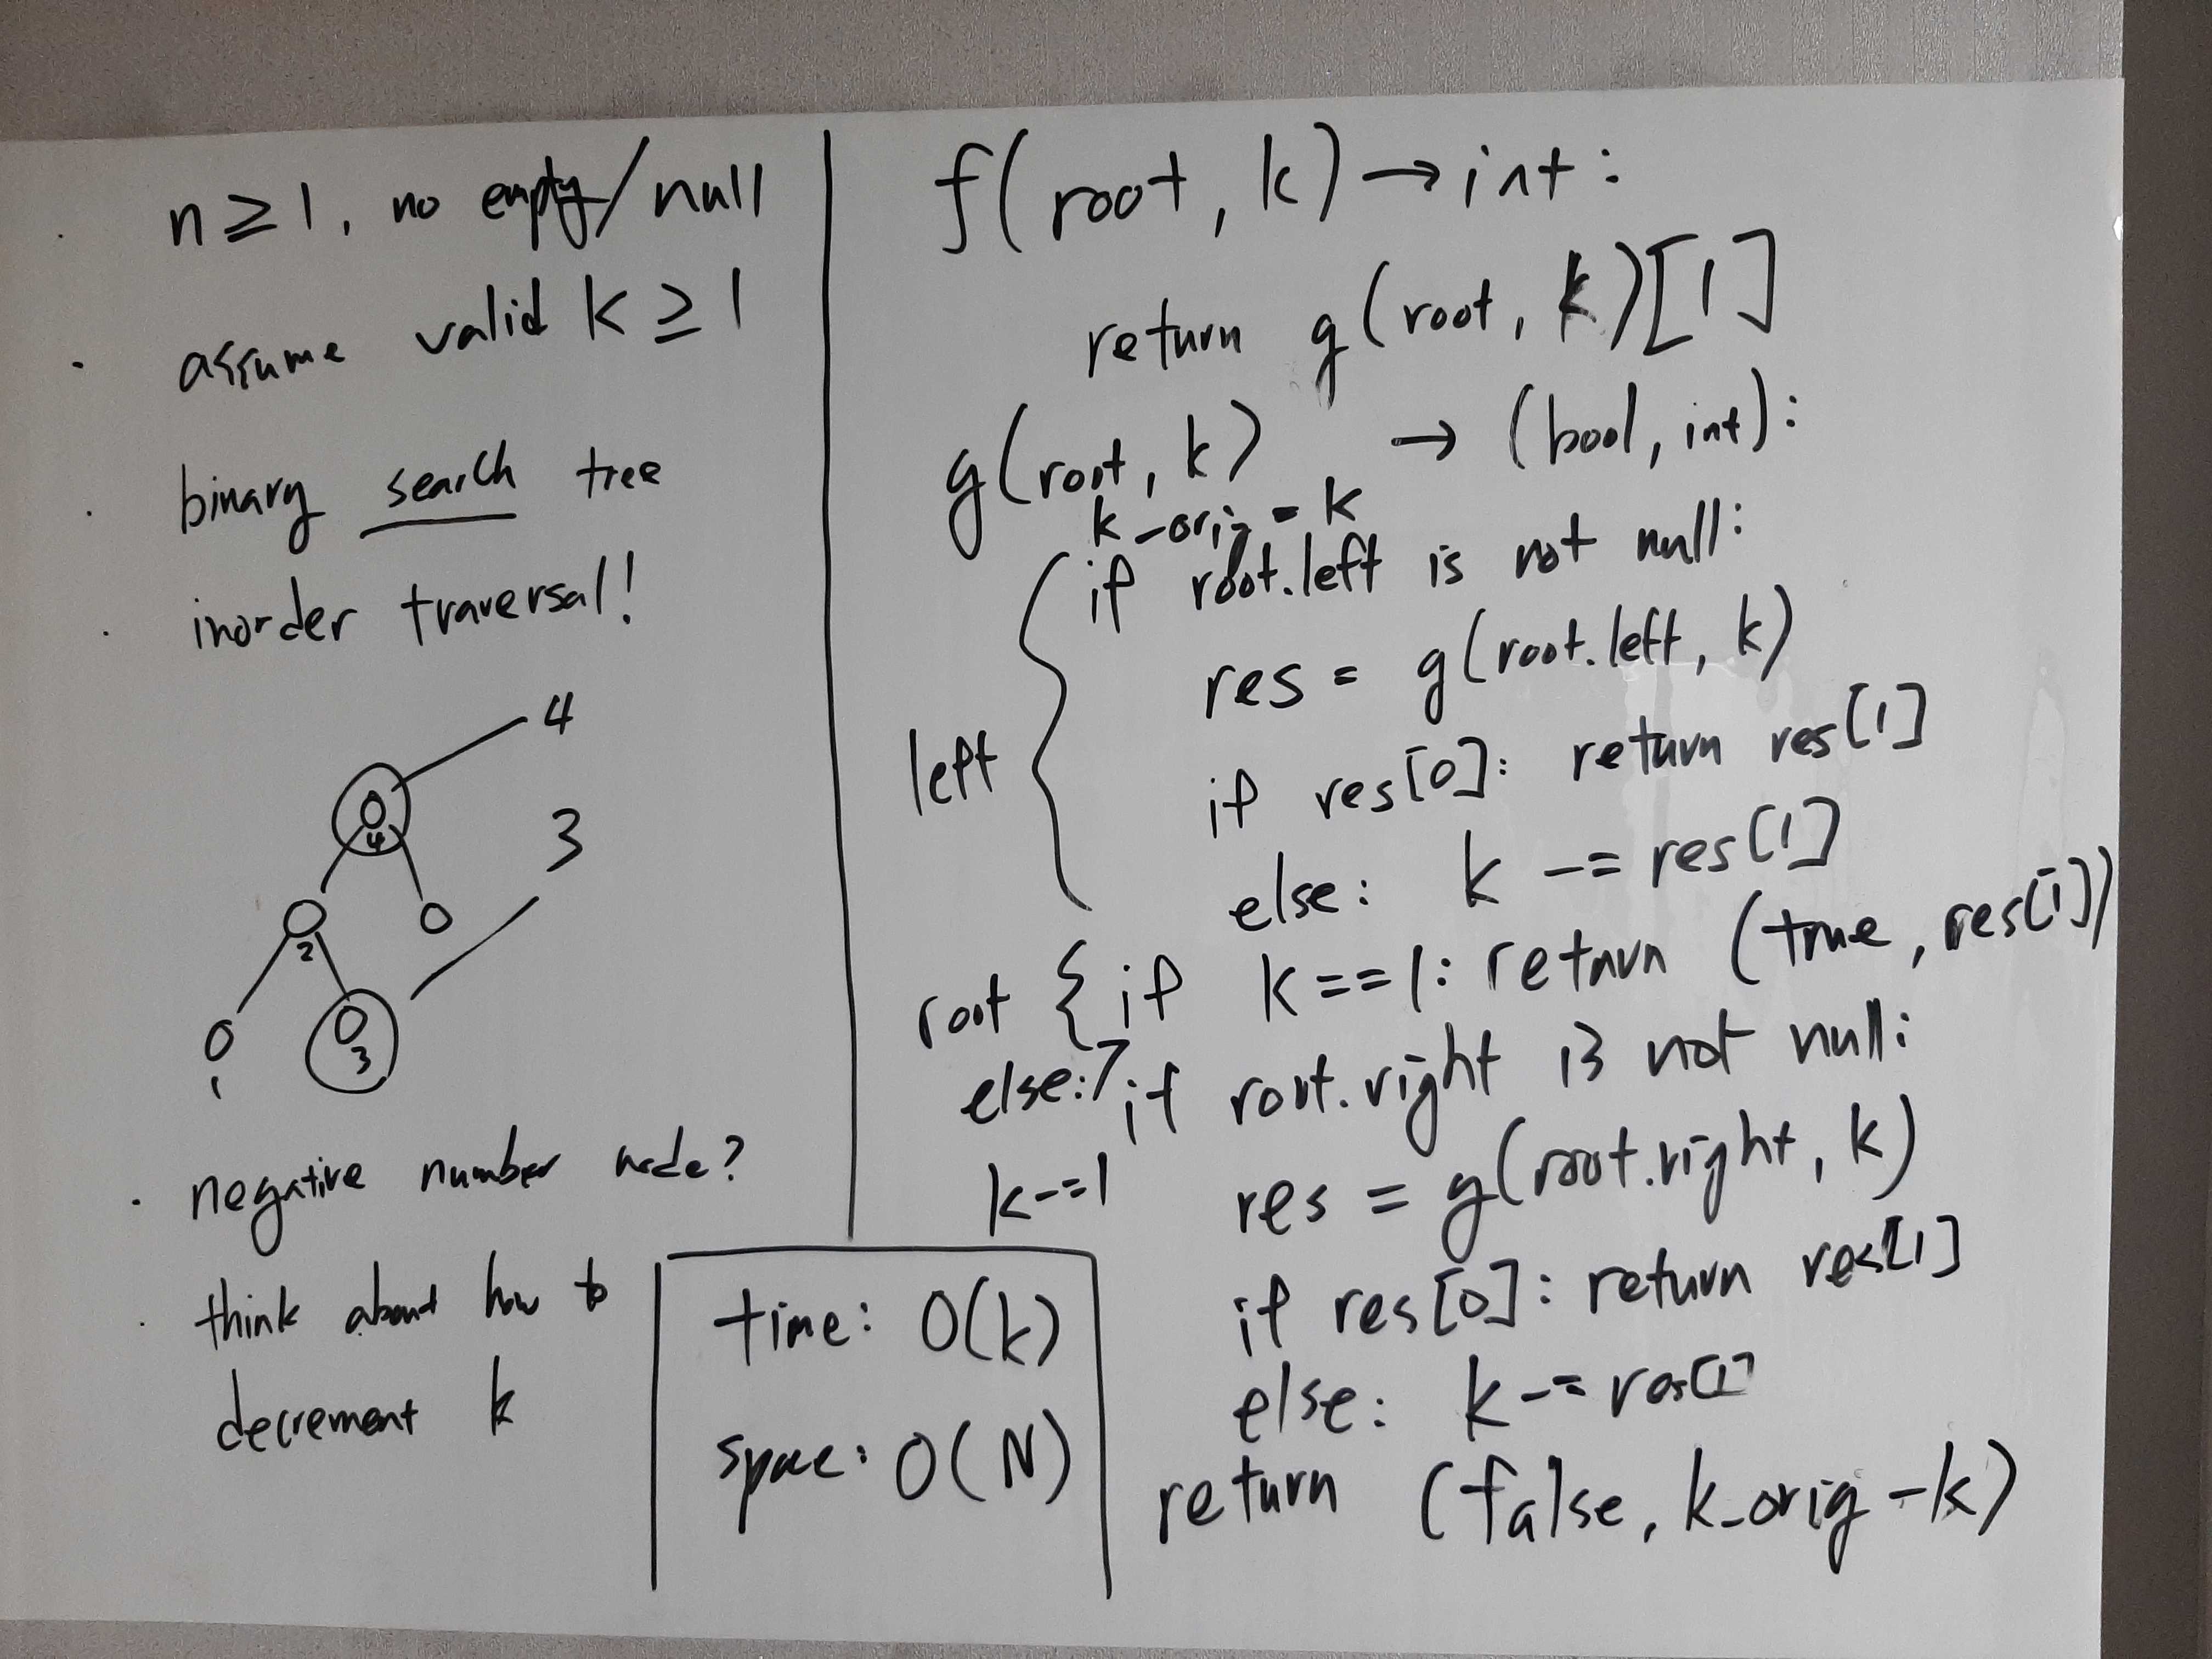 · n ≥ 1, no empty/null
· assume valid k ≥ 1
· binary search tree
· inorder traversal!
4
4
3
2
1
3
· negative number node?
· think about how to
decrement k
time: O(k)
space: O(N)
f(root, k) → int:
return g(root, k)[1]
g(root, k) → (bool, int):
k_orig = k
if root.left is not null:
res = g(root.left, k)
left
if res[0]: return res[1]
else: k -= res[1]
root { if k==1: return (true, res[1])
else: if root.right is not null:
k-=1
res = g(root.right, k)
if res[0]: return res[1]
else: k -= res[1]
return (false, k_orig - k)